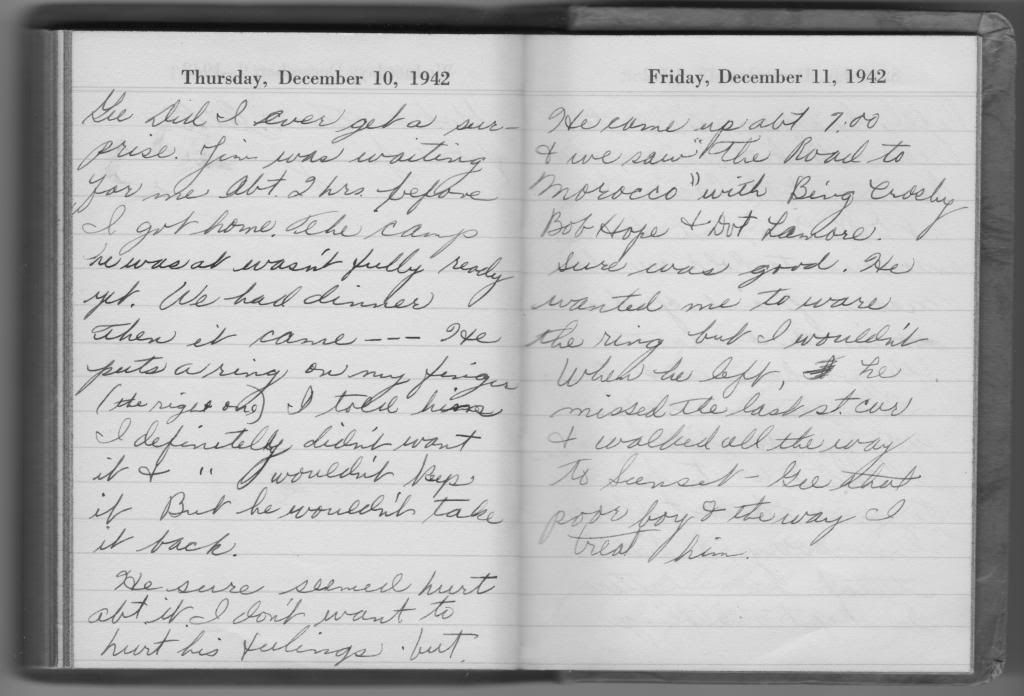 Thursday, December 10, 1942
Gee Did I ever get a sur-
prise. Jim was waiting
for me Abt. 2 hrs. before
I got home. The camp
he was at wasn't fully ready
yet. We had dinner
then it came --- He
puts a ring on my finger
(the right one) I told him
I definitelly didn't want
it & " wouldn't keep
it But he wouldn't take
it back.
He sure seemed hurt
abt it I don't want to
hurt his feelings. but.
Friday, December 11, 1942
He came up abt 7:00
& we saw "the Road to
Morocco" with Bing Crosby
Bob Hope & Dot Lamore.
Sure was good. He
wanted me to ware
the ring but I wouldn't
When he left, he
missed the last st. car
& walked all the way
to Sunset - Gee that
poor boy & the way I
treat him.